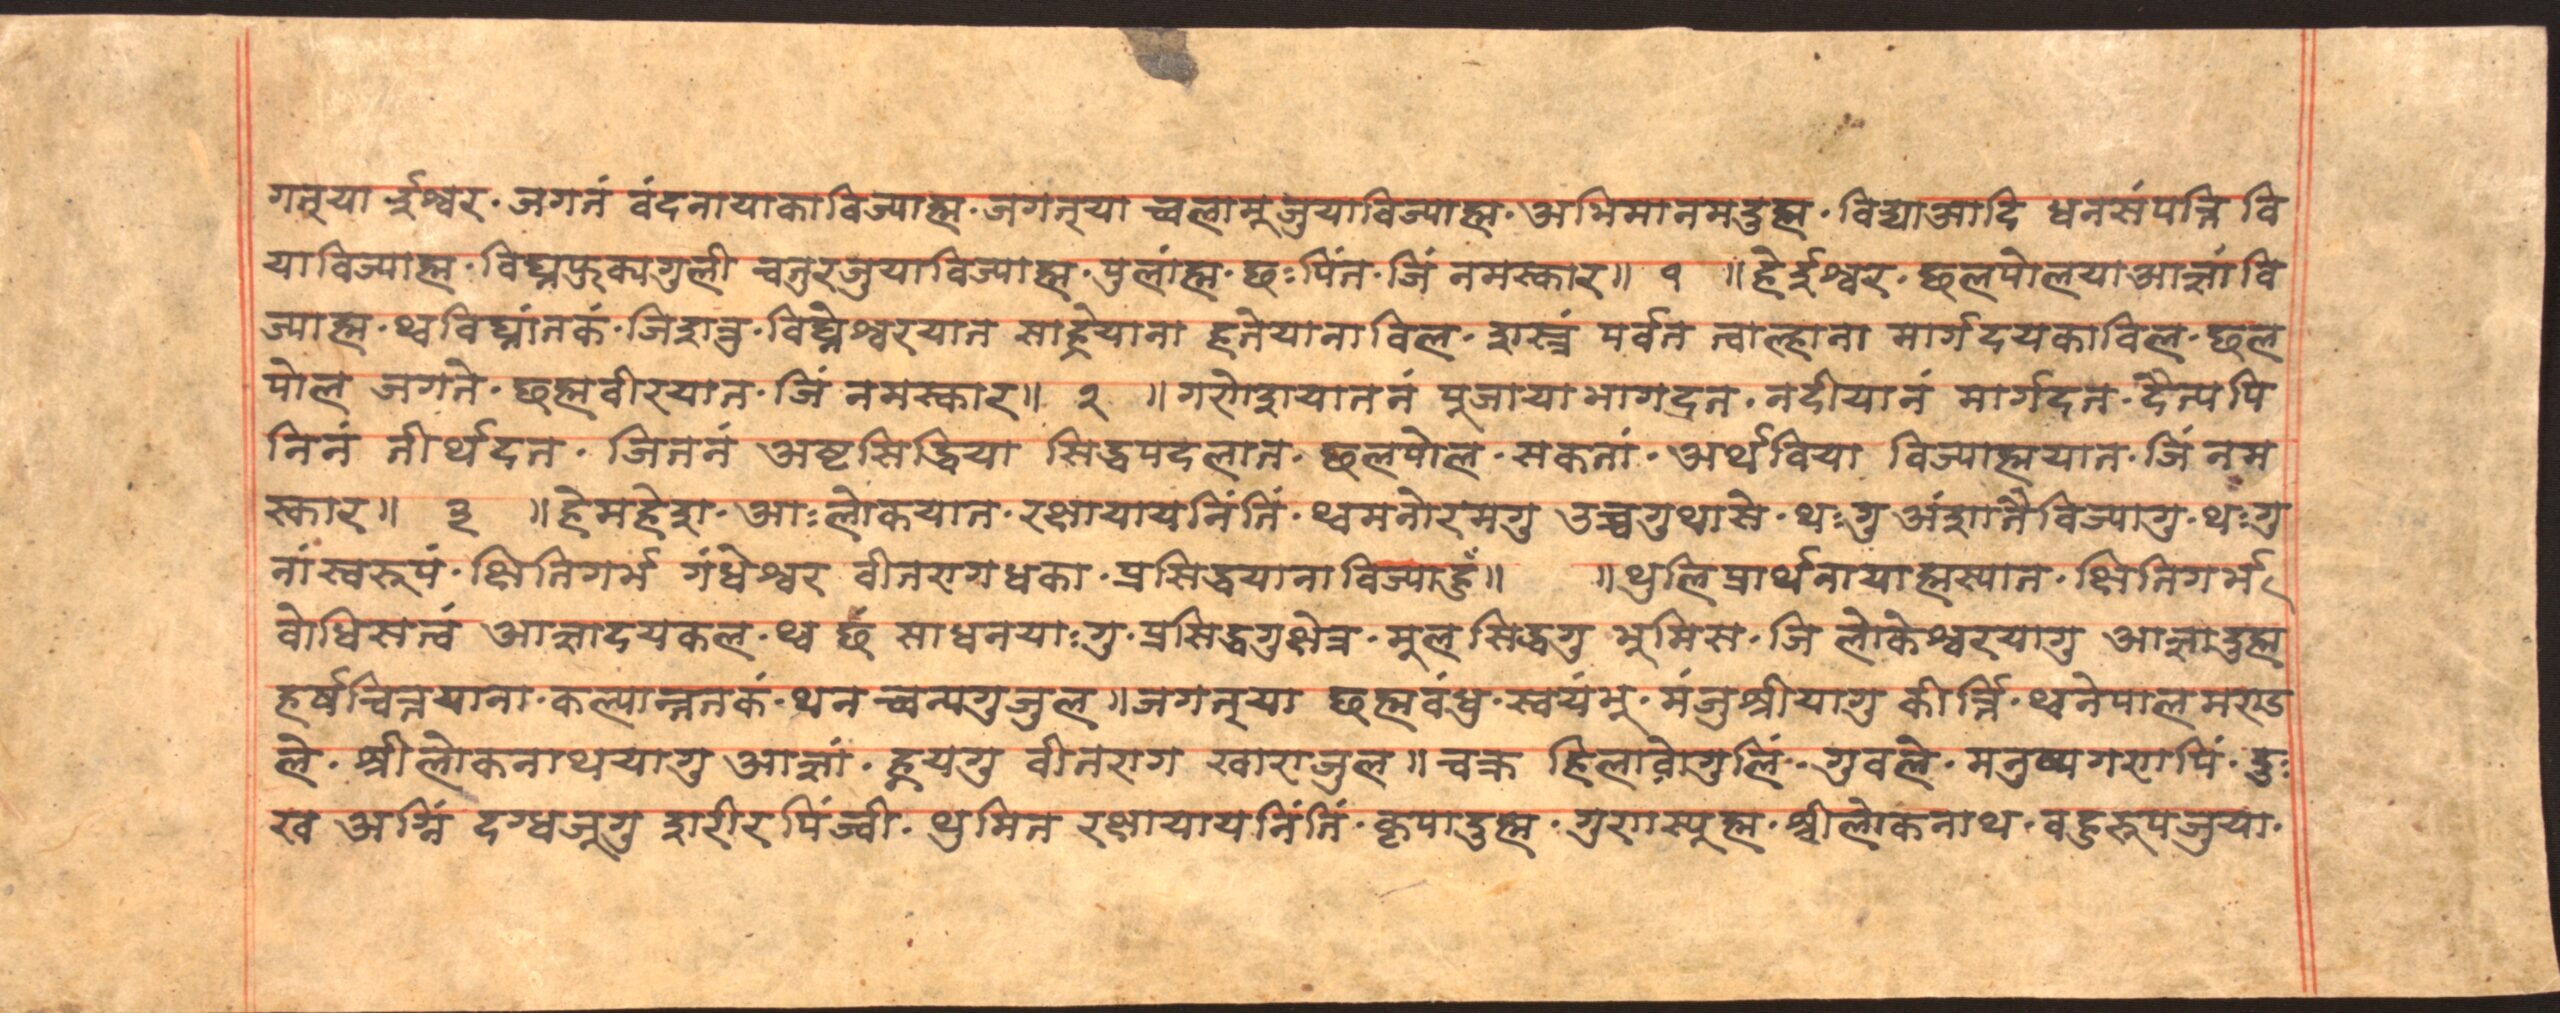 गत्‌या ईश्वर·जगतं वंदनायाकाविज्याह्म·जगत्‌या च्वलामू जुयाविज्याह्म·अभिमानमदुह्म·विद्याआदि धनसंपत्ति वि
याविज्याह्म·विघ्नफुक्यगुली चतुरजुयाविज्याह्म·पुलांह्म·छःपिंत·जिं नमस्कार॥ १ ॥हे ईश्वर·छलपोलयाआज्ञां वि
ज्याह्म·थ्वविघ्नांतकं·जिशत्रु·विघ्नेश्वरयात साह्रेयाना हतेयानाविल·शस्त्रं पर्वत त्वाल्हाना मार्गदयकाविल·छल
पोल जगते·छह्मवीरयात·जिं नमस्कार॥ २ ॥गणेशयाततं पूजायाभागदत·नदीयातं मार्गदत·दैत्यपि
नितं तीर्थदत·जिततं अष्टसिद्धिया सिद्धपदलात·छलपोल·सकतां·अर्थविया विज्याह्मयात·जिं नम
स्कार॥ ३ ॥हेमहेश·आःलोकयात·रक्षायायनिंतिं·थ्वमनोरमगु उच्चगुथासे·थःगु अंशतैविज्यागु·थःगु
नांस्वरूपं·क्षितिगर्भ गंधेश्वर वीतरागधका·प्रसिद्धयानाविज्याहुँ॥ ॥थुलिप्रार्थनायाह्मस्यात·क्षितिगर्भ
वोधिसत्वं आज्ञादयकल·थ्व छं साधनयाःगु·प्रसिद्धगुक्षेत्र·मूलसिद्धगु भूमिस·जि लोकेश्वरयागु आज्ञादुह्म
हर्षचित्तयाना·कल्पान्ततकं·थन च्वन्यगुजुल॥जगत्‌या छह्मवंधु·स्वयंभू·मंजुश्रीयागु कीर्त्ति·थ्वनेपालमण्ड
ले·श्रीलोकनाथयागु आज्ञां·ह्रूयगु वीतराग खाराजुल॥चक्र हिलावोगुलिं·गुवले·मनुष्यगणपिं·दुः
ख अग्निं दग्धजूगु शरीरपिंज्वी·थुमित रक्षायायनिंतिं·कृपादुह्म·गुणस्यूह्म·श्रीलोकनाथ·वहुरूपजुया·